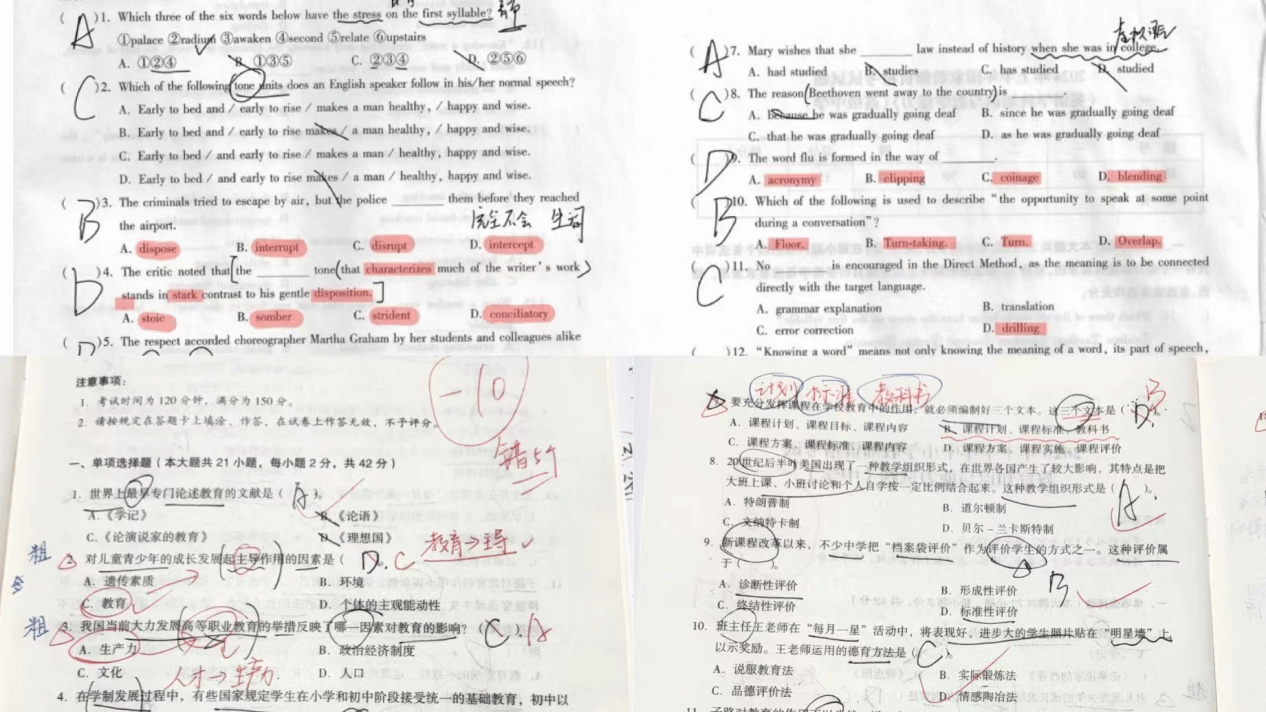 A
( )1. Which three of the six words below have the stress on the first syllable?
①palace ②radium ③awaken ④second ⑤relate ⑥upstairs
A. ①②④ B. ①③⑤ C. ②③④ D. ②⑤⑥
C
( )2. Which of the following tone units does an English speaker follow in his/her normal speech?
A. Early to bed and / early to rise / makes a man healthy, / happy and wise.
B. Early to bed / and early to rise makes / a man healthy, / happy and wise.
C. Early to bed / and early to rise / makes a man / healthy, happy and wise.
D. Early to bed / and early to rise makes / a man / healthy, happy and wise.
B
( )3. The criminals tried to escape by air, but the police ______ them before they reached
the airport.
完全不会 生词
A. dispose B. interrupt C. disrupt D. intercept
D
( )4. The critic noted that the ______ tone that characterizes much of the writer's work
stands in stark contrast to his gentle disposition.
A. stoic B. somber C. strident D. conciliatory
( )5. The respect accorded choreographer Martha Graham by her students and colleagues alike
虚拟语气
A
( )7. Mary wishes that she ______ law instead of history when she was in college.
A. had studied B. studies C. has studied D. studied
C
( )8. The reason Beethoven went away to the country is
A. Because he was gradually going deaf B. since he was gradually going deaf
C. that he was gradually going deaf D. as he was gradually going deaf
D
( )9. The word flu is formed in the way of ______.
A. acronymy B. clipping C. coinage D. blending
B
( )10. Which of the following is used to describe "the opportunity to speak at some point
during a conversation"?
A. Floor. B. Turn-taking. C. Turn. D. Overlap.
C
( )11. No ______ is encouraged in the Direct Method, as the meaning is to be connected
directly with the target language.
A. grammar explanation B. translation
C. error correction D. drilling
( )12. "Knowing a word" means not only knowing the meaning of a word, its part of speech,
注意事项:
1. 考试时间为 120 分钟,满分为 150 分。
2. 请按规定在答题卡上填涂、作答。在试卷上作答无效,不予评分。
-10
错5个
一、单项选择题(本大题共 21 小题,每小题 2 分,共 42 分)
1. 世界上最早专门论述教育的文献是( A )。
A.《学记》 B.《论语》
C.《论演说家的教育》 D.《理想国》
粗
2. 对儿童青少年的成长发展起主导作用的因素是( D )。 C 教育→主导
A. 遗传素质 B. 环境
C. 教育 D. 个体的主观能动性
粗
3. 我国当前大力发展高等职业教育的举措反映了哪一因素对教育的影响?( C )。 A
A. 生产力 B. 政治经济制度
C. 文化 D. 人口
人才→生产力
4. 在学制发展过程中,有些国家规定学生在小学和初中阶段接受统一的基础教育,初中以
计划 标准 教科书
要充分发挥课程在学校教育中的作用,就必须编制好三个文本。这三个文本是( D )。 B
A. 课程计划、课程目标、课程内容 B. 课程计划、课程标准、教科书
C. 课程方案、课程标准、课程内容 D. 课程方案、课程实施、课程评价
8. 20世纪后半叶美国出现了一种教学组织形式,在世界各国产生了较大影响,其特点是把
大班上课、小班讨论和个人自学按一定比例结合起来。这种教学组织形式是( A )。
A. 特朗普制 B. 道尔顿制
C. 文纳特卡制 D. 贝尔－兰卡斯特制
9. 新课程改革以来,不少中学把"档案袋评价"作为评价学生的方式之一。这种评价属
于( )。
B
A. 诊断性评价 B. 形成性评价
C. 终结性评价 D. 标准性评价
10. 班主任王老师在"每月一星"活动中,将表现好、进步大的学生照片贴在"明星墙"上
以示奖励。王老师运用的德育方法是( C )。
A. 说服教育法 B. 实际锻炼法
C. 品德评价法 D. 情感陶冶法